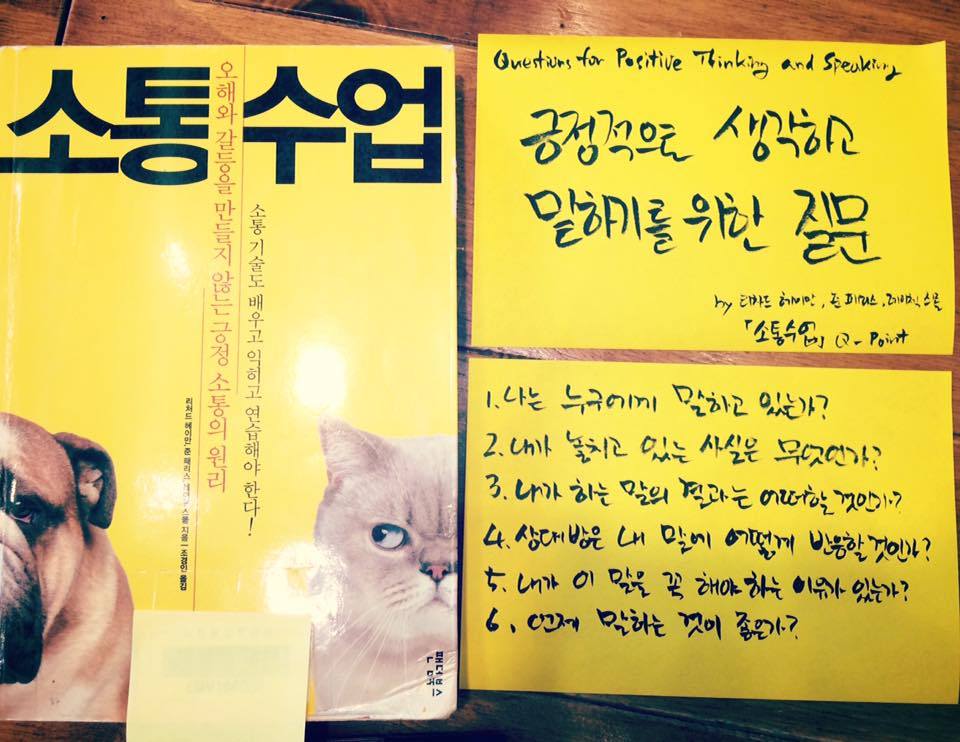 소통수업
오해와 갈등을 만들지 않는 긍정 소통의 원리
소통 기술도 배우고 익히고 연습해야 한다!
리처드 헤이만 준 패리스 지음 | 조경인 옮김
Questions for Positive Thinking and Speaking
긍정적으로 생각하고
말하기를 위한 질문
by 리차드 헤이만,
「소통수업」 Q-Point
1. 나는 누구에게 말하고 있는가?
2. 내가 놓치고 있는 사실은 무엇인가?
3. 내가 하는 말의 결과는 어떠할 것인가?
4. 상대방은 내 말에 어떻게 반응할 것인가?
5. 내가 이 말을 꼭 해야 하는 이유가 있는가?
6. 언제 말하는 것이 좋은가?